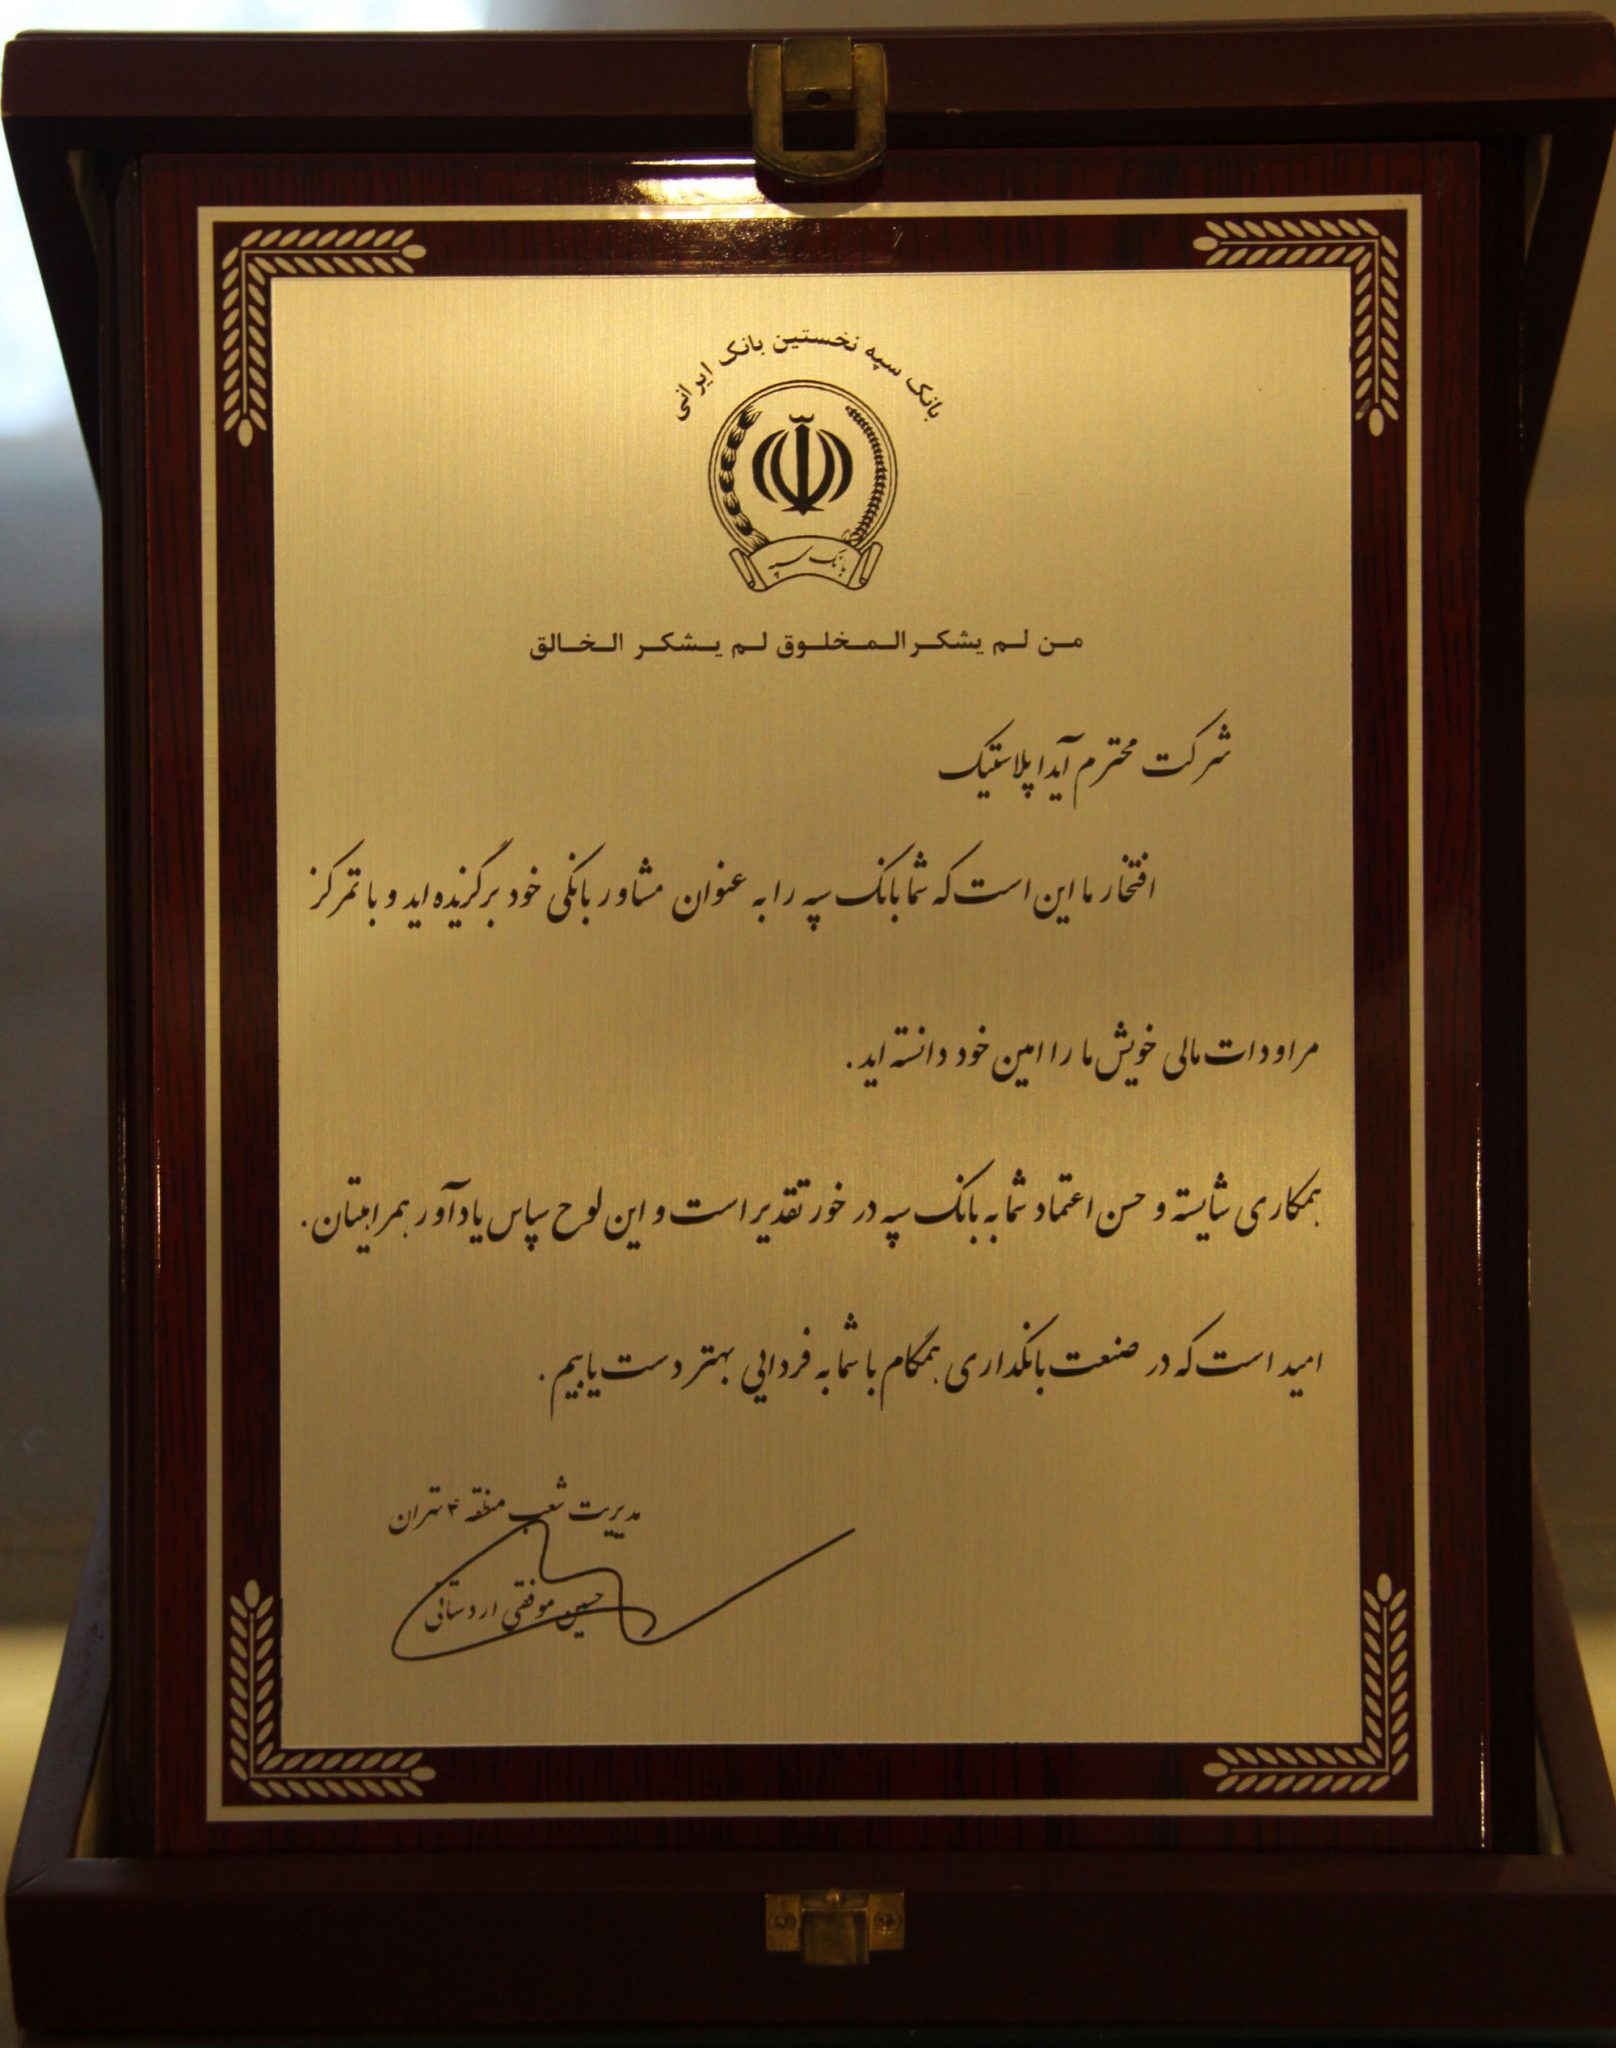 بانک سپه نخستین بانک ایرانی
بانک سپه
من لم یشکر المخلوق لم یشکر الخالق
شرکت محترم آیدا پلاستیک
افتخار ما این است که شما بانک سپه را به عنوان مشاور بانکی خود برگزیده اید و با تمرکز
مراودات مالی خویش ما را امین خود دانسته اید.
همکاری شایسته و حسن اعتماد شما به بانک سپه در خور تقدیر است و این لوح سپاس یادآور همراهیتان.
امید است که در صنعت بانکداری همگام با شما به فردایی بهتر دست یابیم.
مدیریت شعب منطقه ۴ تهران
حسین موفقی اردستانی